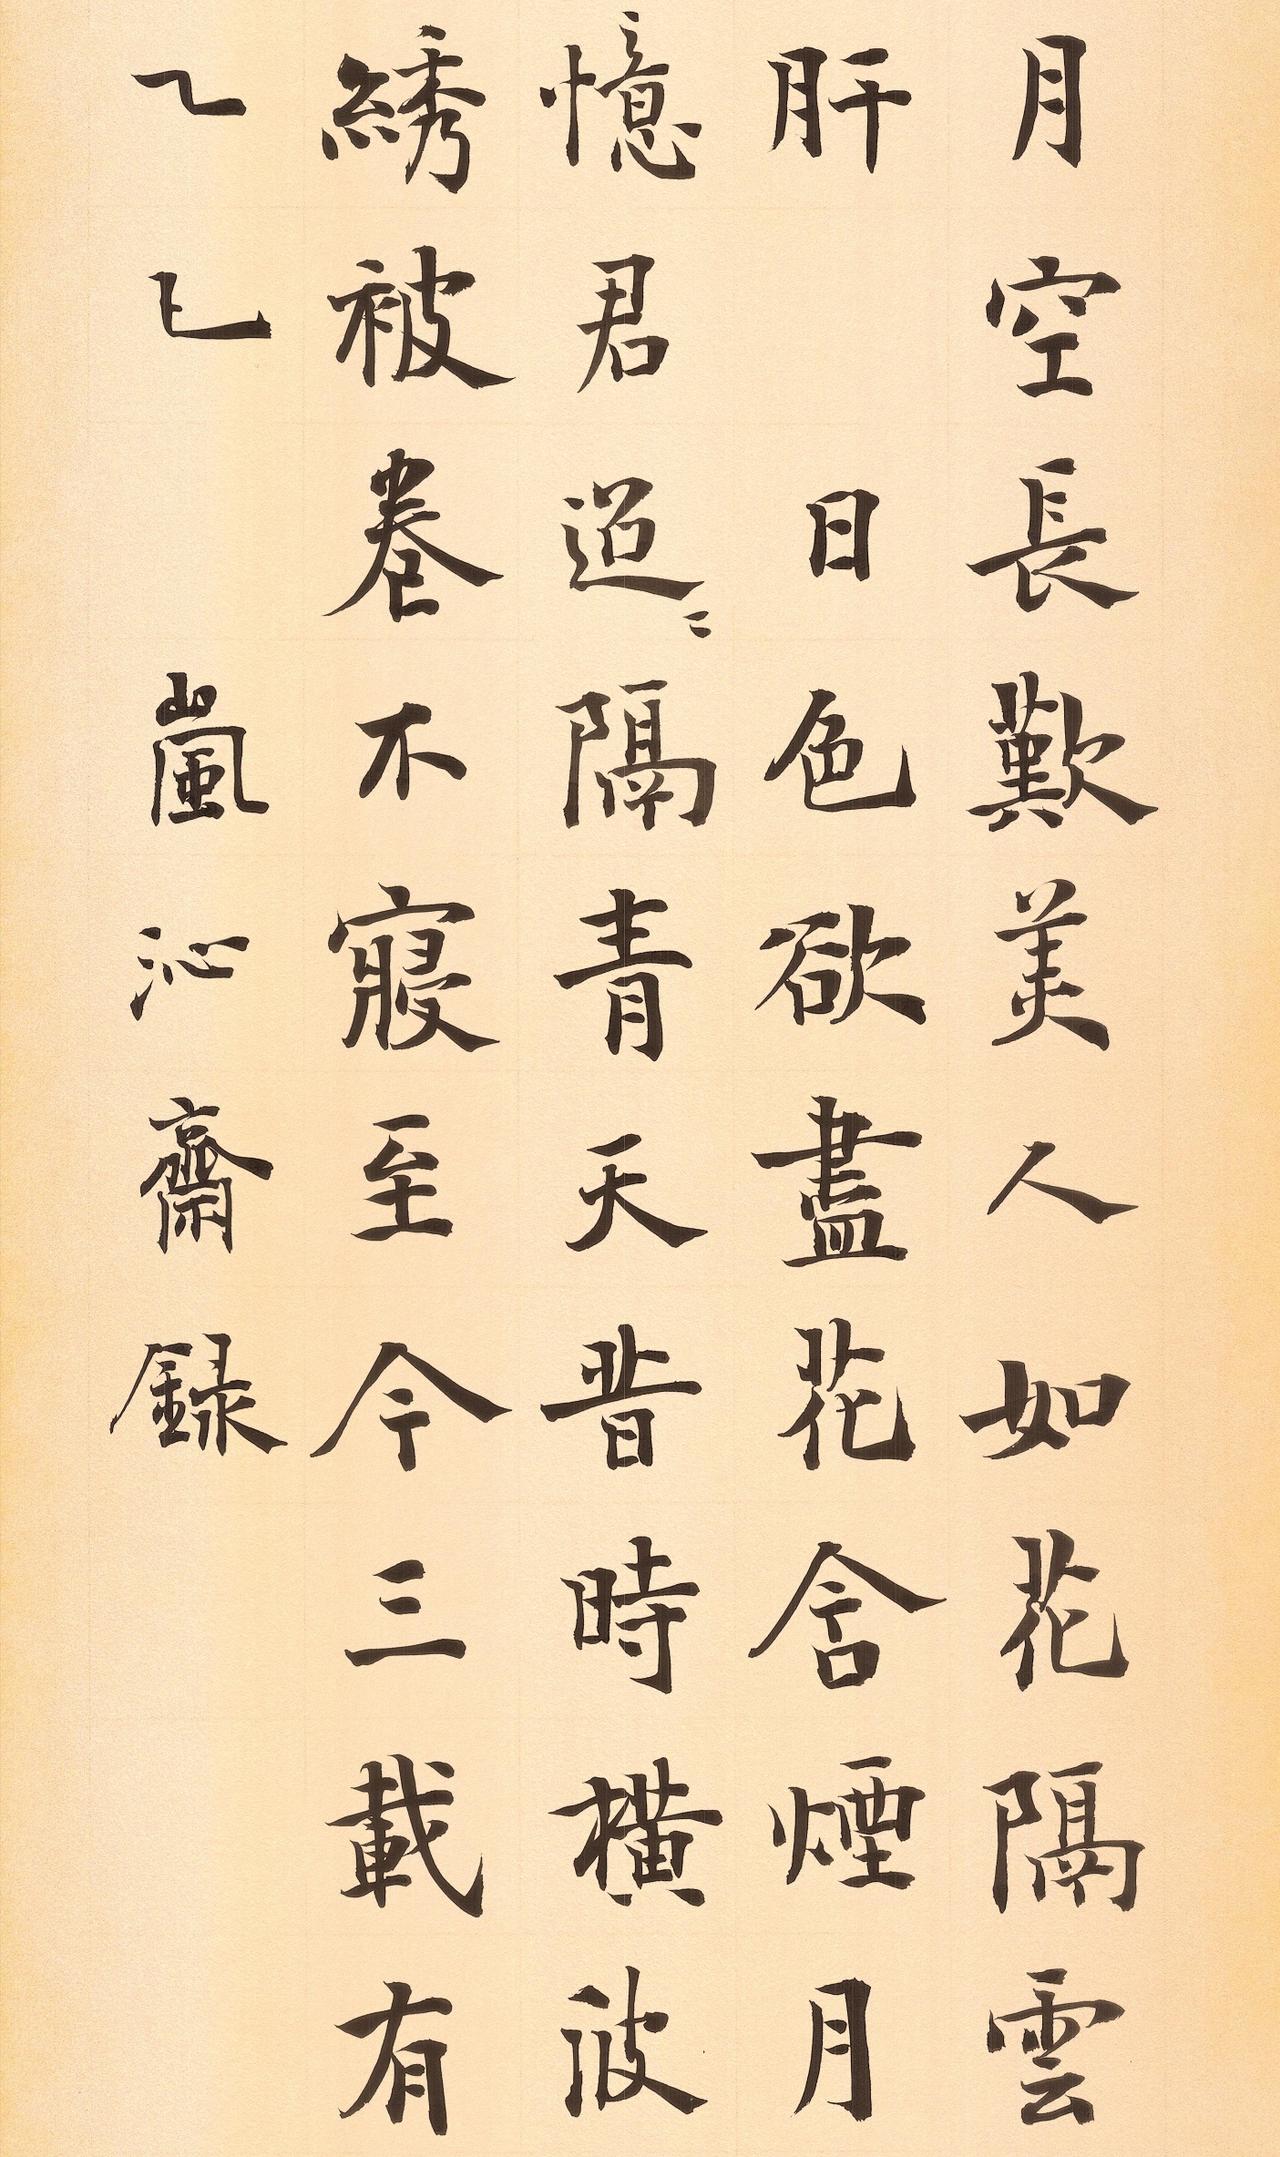 月空長歎美人如花隔雲
肝　日色欲盡花含煙月
憶君迢〻隔青天昔時橫波
綉被卷不寢至今三載有
乙巳　嵐沁齋録